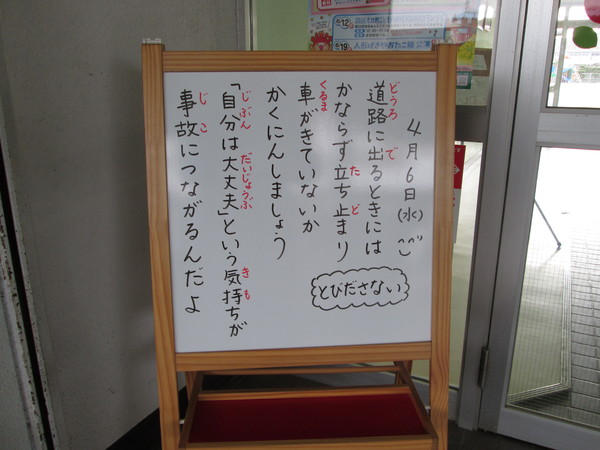 4月6日(水)
道路に出るときには
どうろ
で
かならず立ち止まり
た
ど
車がきていないか
くるま
かくにんしましょう
「自分は大丈夫」という気持ちが
じぶん
だいじょうぶ
きも
事故につながるんだよ
じこ
とびださない